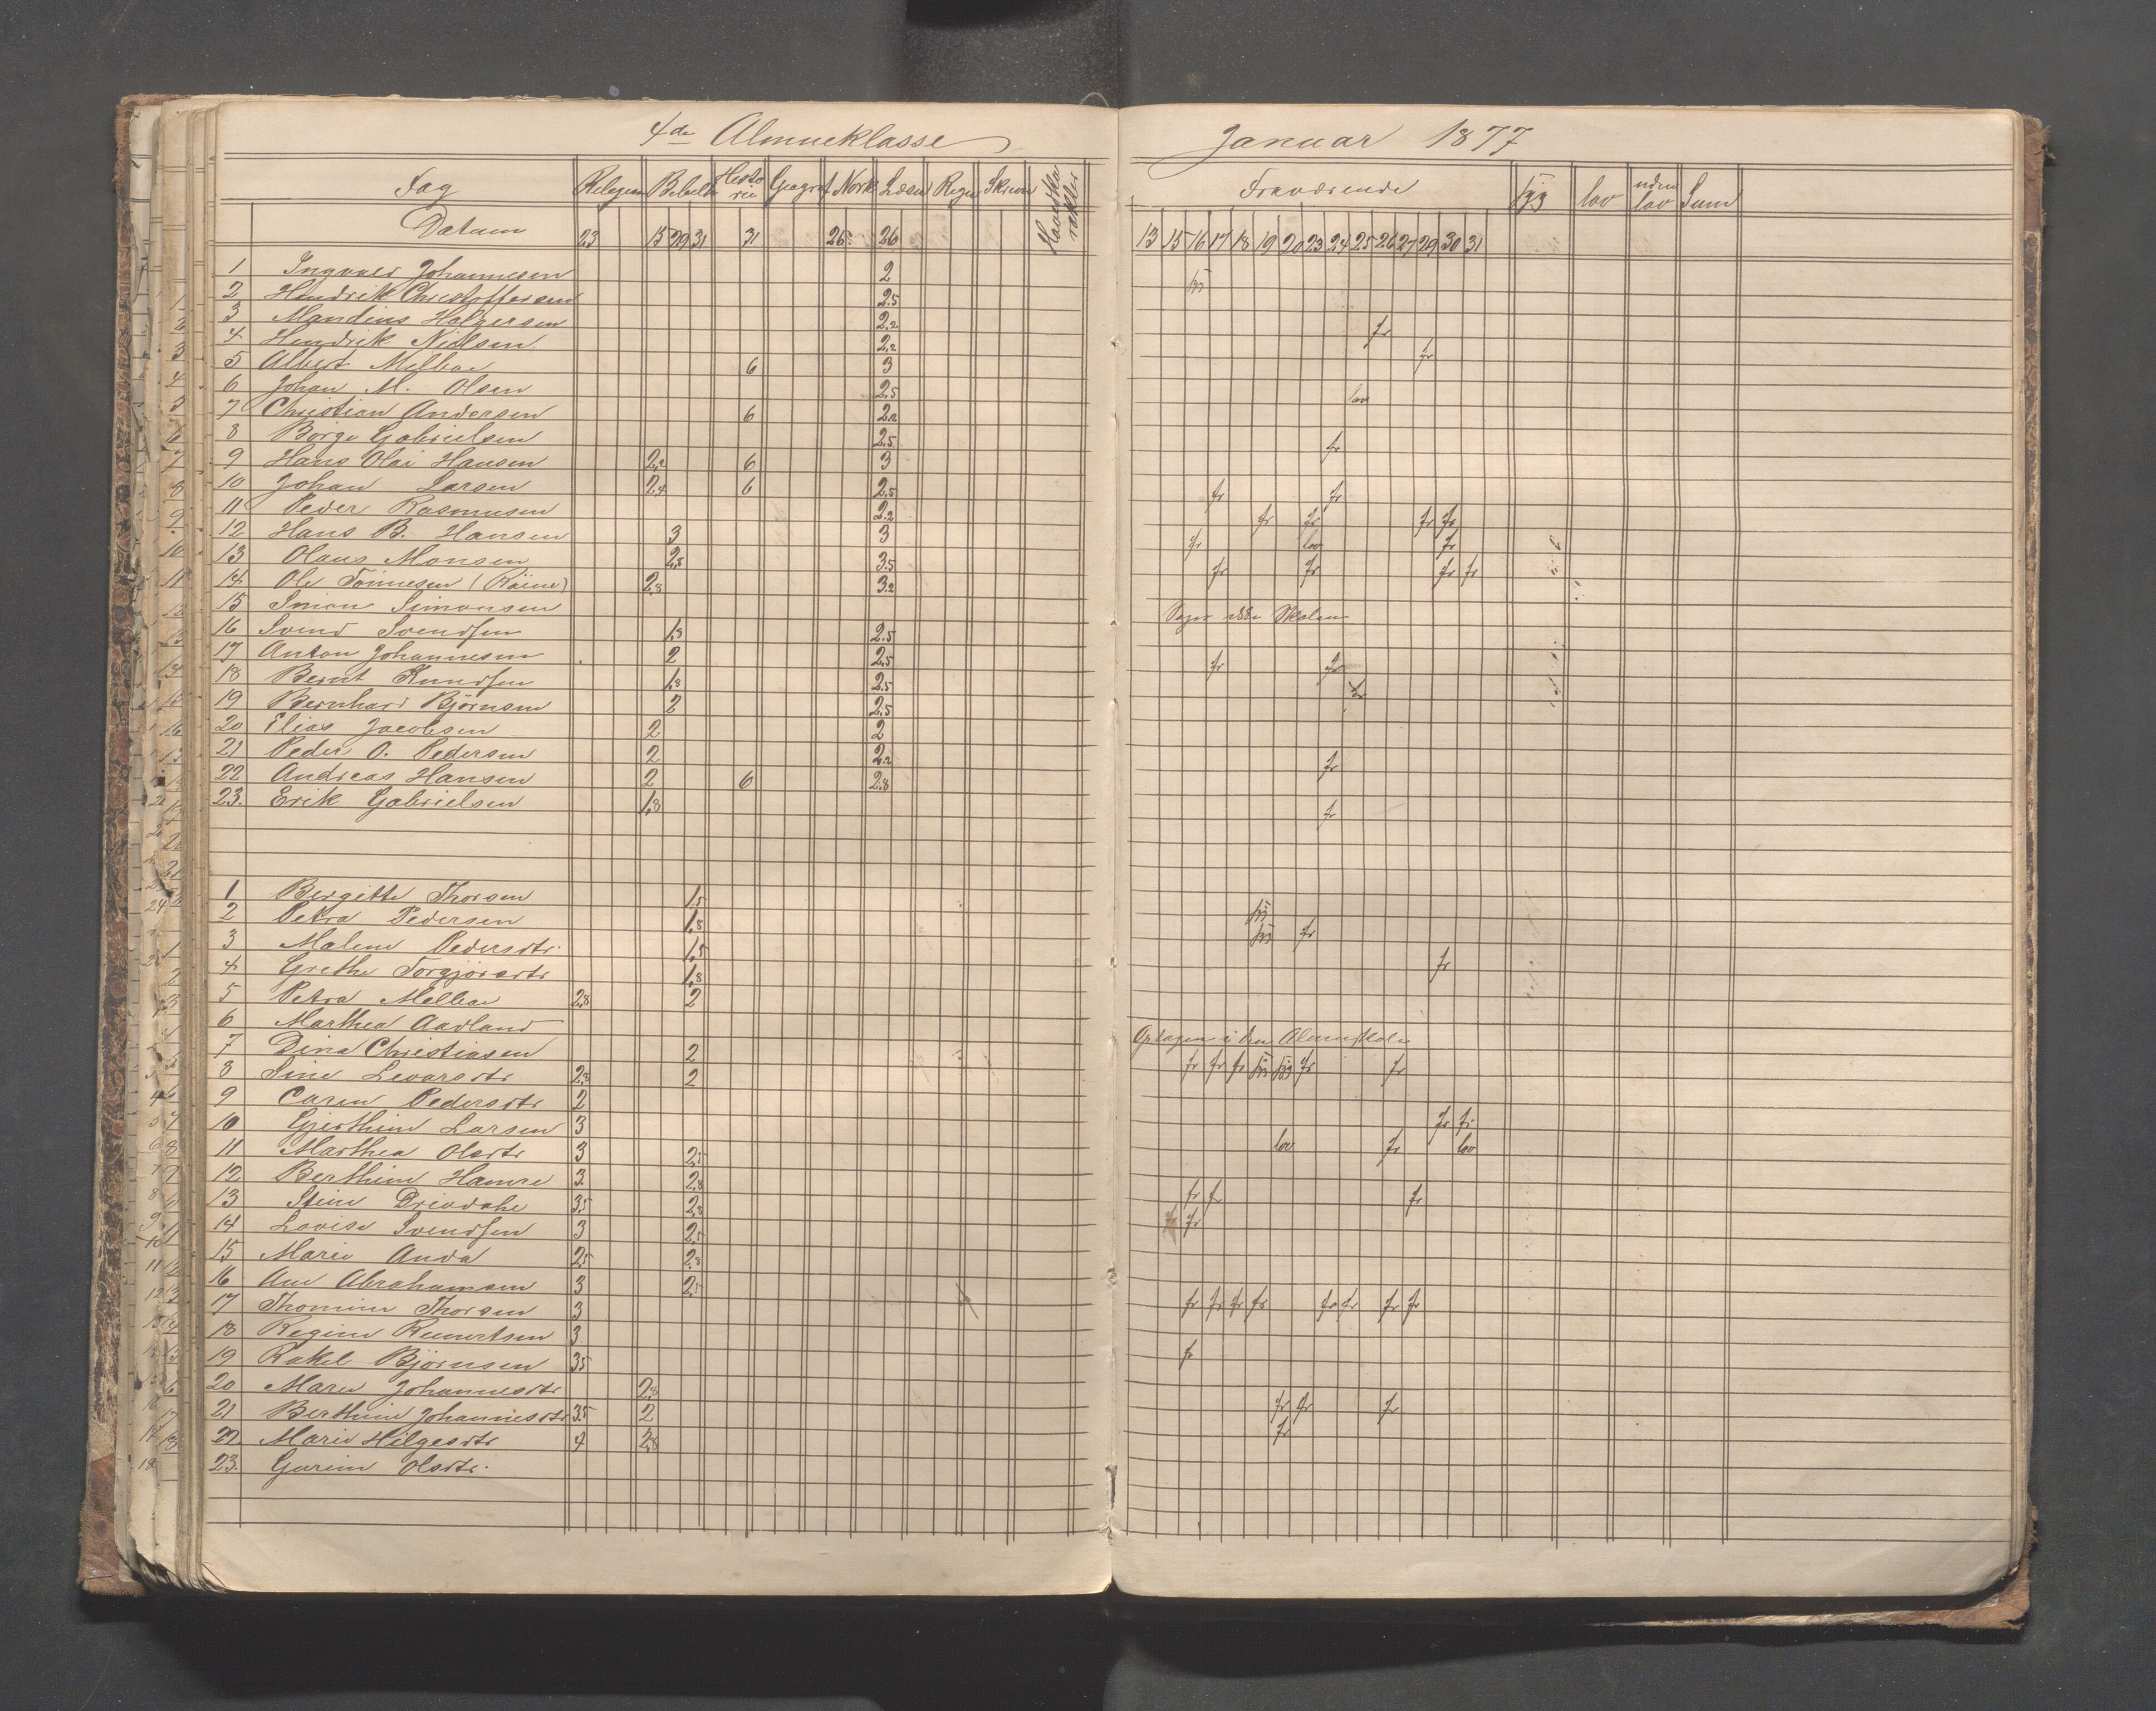 4de Almueklasse
Januar 1877
Fag Religion Bibelh Histo rie Geograf Norsk Læsn Regn Skrivn Hovedka rakter Fraværende syg lov uden lov Sum
Datum 23 15 29 31 31 25 26 13 15 16 17 18 19 20 23 24 25 26 27 29 30 31
1 Ingvald Johannesen 2
2 Hendrik Christoffersen 2.5
3 Mandius Holgersen 2.2 fr
4 Hendrik Nielsen 2.2 fr
5 Albert Melbae 6 3
6 Johan M. Olsen 2.5 lov
7 Christian Andersen 6 2.2
8 Börge Gabrielsen 2.5 fr
9 Hans Olai Hansen 2.2 6 3
10 Johan Larsen 2.4 6 2.5 fr fr
11 Peder Rasmusen 2.2 fr fr fr fr
12 Hans B. Hansen 3 3 fr lov fr
13 Olaus Monsen 2.5 3.5 fr fr fr fr
14 Ole Tönnesen (Röine) 2.8 3.2
15 Simon Simonsen Skolen
16 Svend Svendsen 1.8 2.5
17 Anton Johannesen 2 2.5 fr fr
18 Bernt Knudsen 1.8 2.5 fr
19 Bernhard Björnsen 2 2.5
20 Elias Jacobsen 2 2
21 Peder O. Pedersen 2 2.2 fr
22 Andreas Hansen 2 6 2.8
23. Erik Gabrielsen 1.8 fr
1 Bergitte Thorsen 1.5
2 Petra Pedersen 1.8 fr
3 Malene Pedersdtr. 1.5 fr
4 Grethe Torgjersdtr 1.8
5 Petra Melbae 2.8 2
6 Marthea Aadland Optagen i den Almueskole
7 Dina Christiasen 2 fr fr fr fr fr
8 Sine Levardsdtr 2.8 2
9 Caren Pedersdtr 2 fr fr
10 Gjerthine Larsen 3 lov fr lov
11 Marthea Olsdtr 3 2.5
12 Berthine Hamre 3. 2.8 fr fr fr
13 Stine Drivdahe 3.5 2.8 fr
14 Lovise Svendsen 3 2.5
15 Marie Anda 2.5 2.8
16 Ane Abrahamsen 3 2.5 fr fr fr fr fr fr fr fr
17 Thomine Thorsen 3
18 Regine Reinertsen 3. fr
19 Rakel Björnsen 3.5
20 Maren Johannesdtr 2.8 fr fr fr
21 Berthine Johannesdtr 3.5 2 fr
22. Marie Hilgesdtr 4 2.8
23. Gurine Olsdtr.